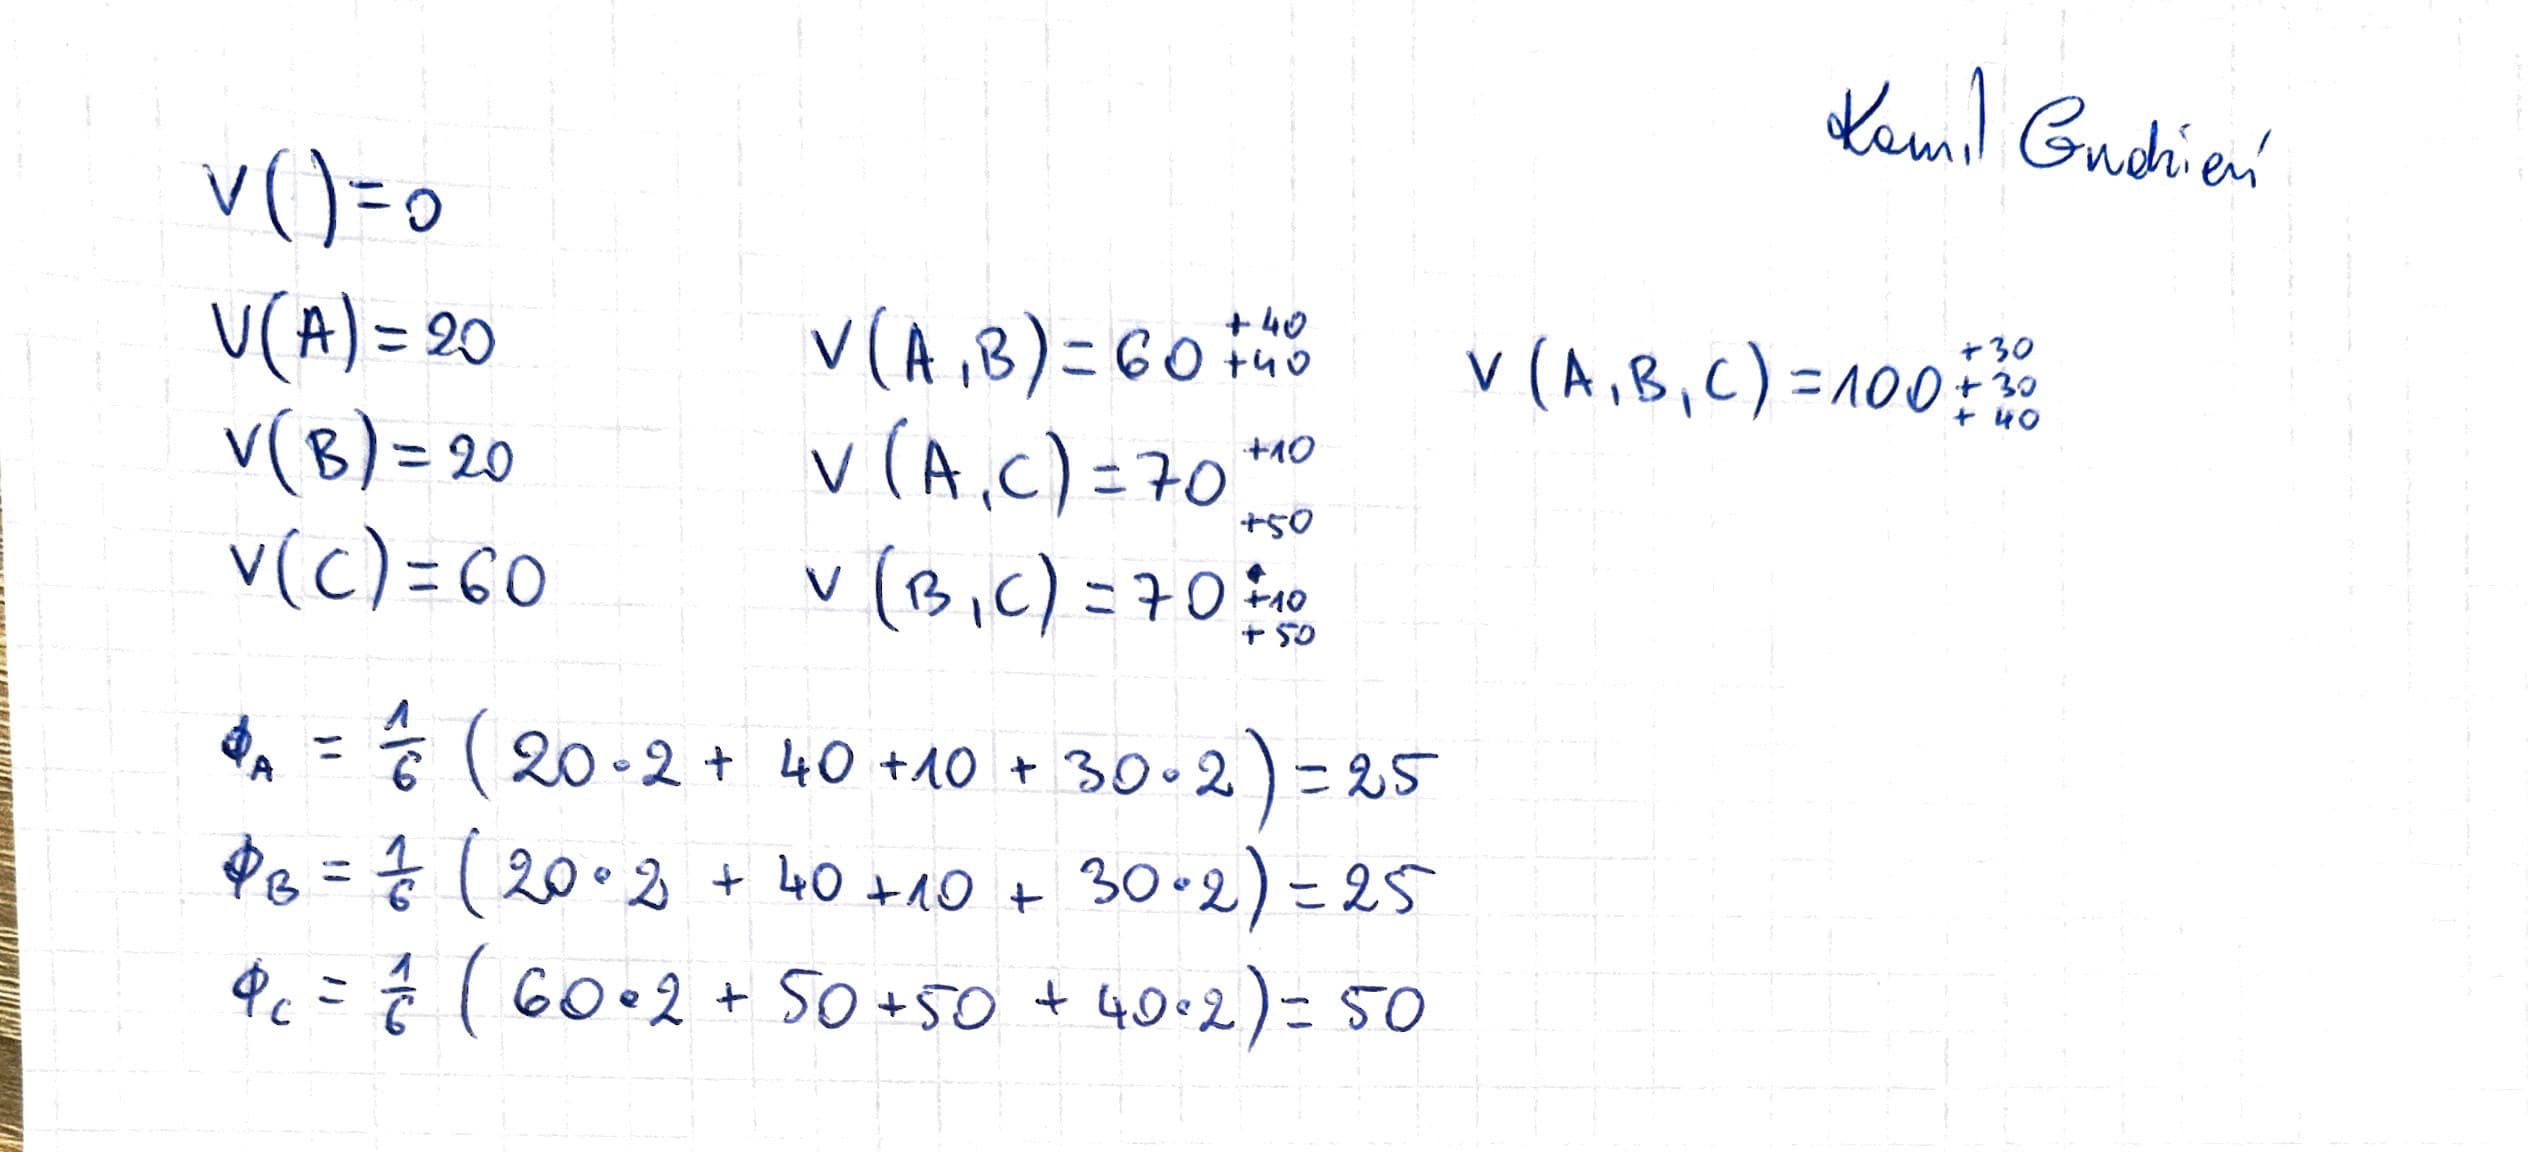 Kamil Gudzień
V()=0
V(A)=20
V(B)=20
V(C)=60
V(A,B)=60 +40 +40
V(A,C)=70 +10 +50
V(B,C)=70 +10 +50
V(A,B,C)=100 +30 +30 +40
ϕA = 1/6 (20·2 + 40 +10 + 30·2) = 25
ϕB = 1/6 (20·2 + 40 +10 + 30·2) = 25
ϕC = 1/6 (60·2 + 50 +50 + 40·2) = 50